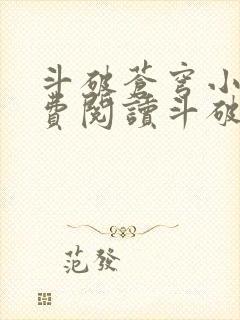 斗破蒼穹小
費閱讀斗破
范發